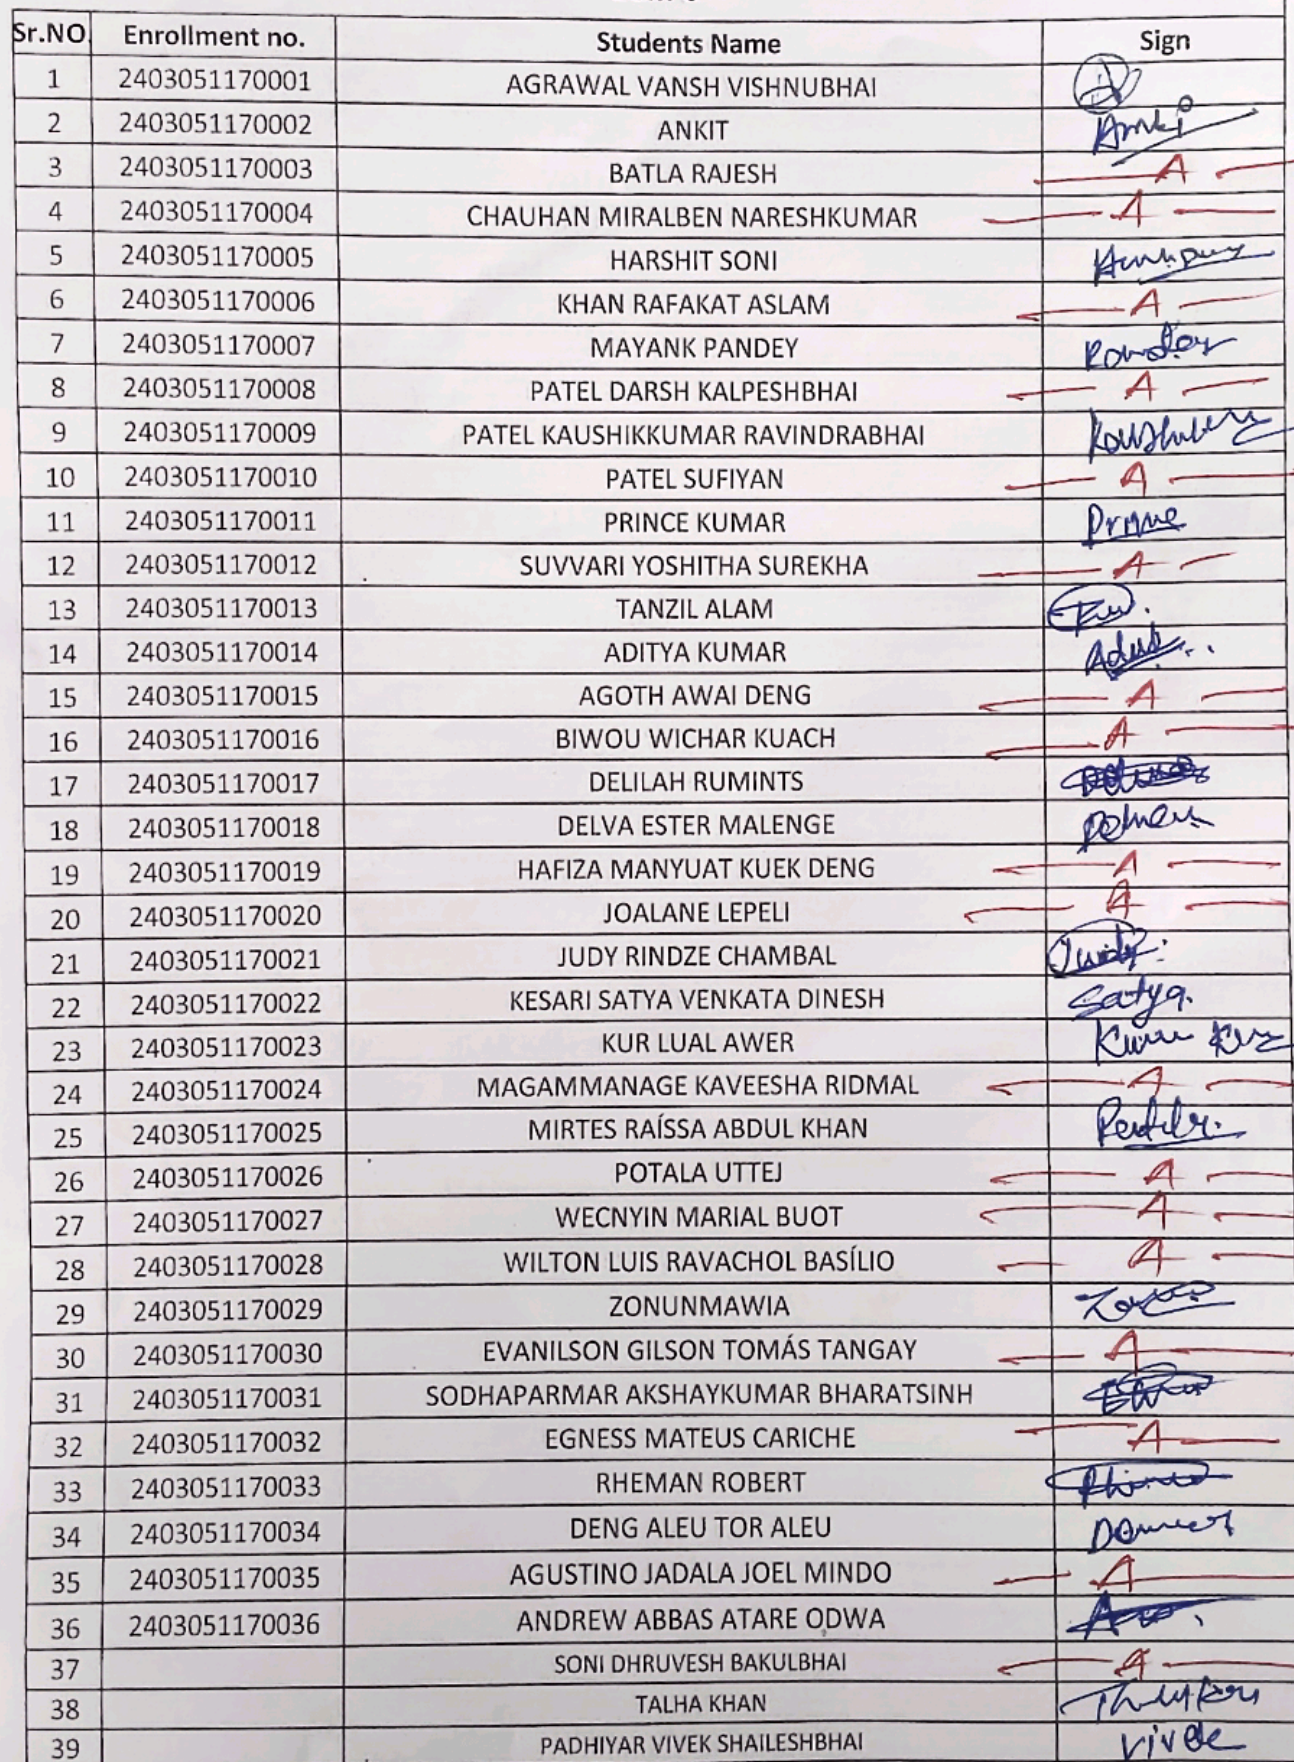 Sr.NO. Enrollment no. Students Name Sign
1 2403051170001 AGRAWAL VANSH VISHNUBHAI
2 2403051170002 ANKIT
3 2403051170003 BATLA RAJESH A
4 2403051170004 CHAUHAN MIRALBEN NARESHKUMAR A
5 2403051170005 HARSHIT SONI
6 2403051170006 KHAN RAFAKAT ASLAM A
7 2403051170007 MAYANK PANDEY
8 2403051170008 PATEL DARSH KALPESHBHAI A
9 2403051170009 PATEL KAUSHIKKUMAR RAVINDRABHAI
10 2403051170010 PATEL SUFIYAN A
11 2403051170011 PRINCE KUMAR
12 2403051170012 SUVVARI YOSHITHA SUREKHA A
13 2403051170013 TANZIL ALAM
14 2403051170014 ADITYA KUMAR
15 2403051170015 AGOTH AWAI DENG A
16 2403051170016 BIWOU WICHAR KUACH A
17 2403051170017 DELILAH RUMINTS
18 2403051170018 DELVA ESTER MALENGE
19 2403051170019 HAFIZA MANYUAT KUEK DENG A
20 2403051170020 JOALANE LEPELI A
21 2403051170021 JUDY RINDZE CHAMBAL
22 2403051170022 KESARI SATYA VENKATA DINESH Satya.
23 2403051170023 KUR LUAL AWER
24 2403051170024 MAGAMMANAGE KAVEESHA RIDMAL A
25 2403051170025 MIRTES RAÍSSA ABDUL KHAN
26 2403051170026 POTALA UTTEJ A
27 2403051170027 WECNYIN MARIAL BUOT A
28 2403051170028 WILTON LUIS RAVACHOL BASÍLIO A
29 2403051170029 ZONUNMAWIA
30 2403051170030 EVANILSON GILSON TOMÁS TANGAY A
31 2403051170031 SODHAPARMAR AKSHAYKUMAR BHARATSINH
32 2403051170032 EGNESS MATEUS CARICHE A
33 2403051170033 RHEMAN ROBERT
34 2403051170034 DENG ALEU TOR ALEU
35 2403051170035 AGUSTINO JADALA JOEL MINDO A
36 2403051170036 ANDREW ABBAS ATARE ODWA
37 SONI DHRUVESH BAKULBHAI A
38 TALHA KHAN
39 PADHIYAR VIVEK SHAILESHBHAI